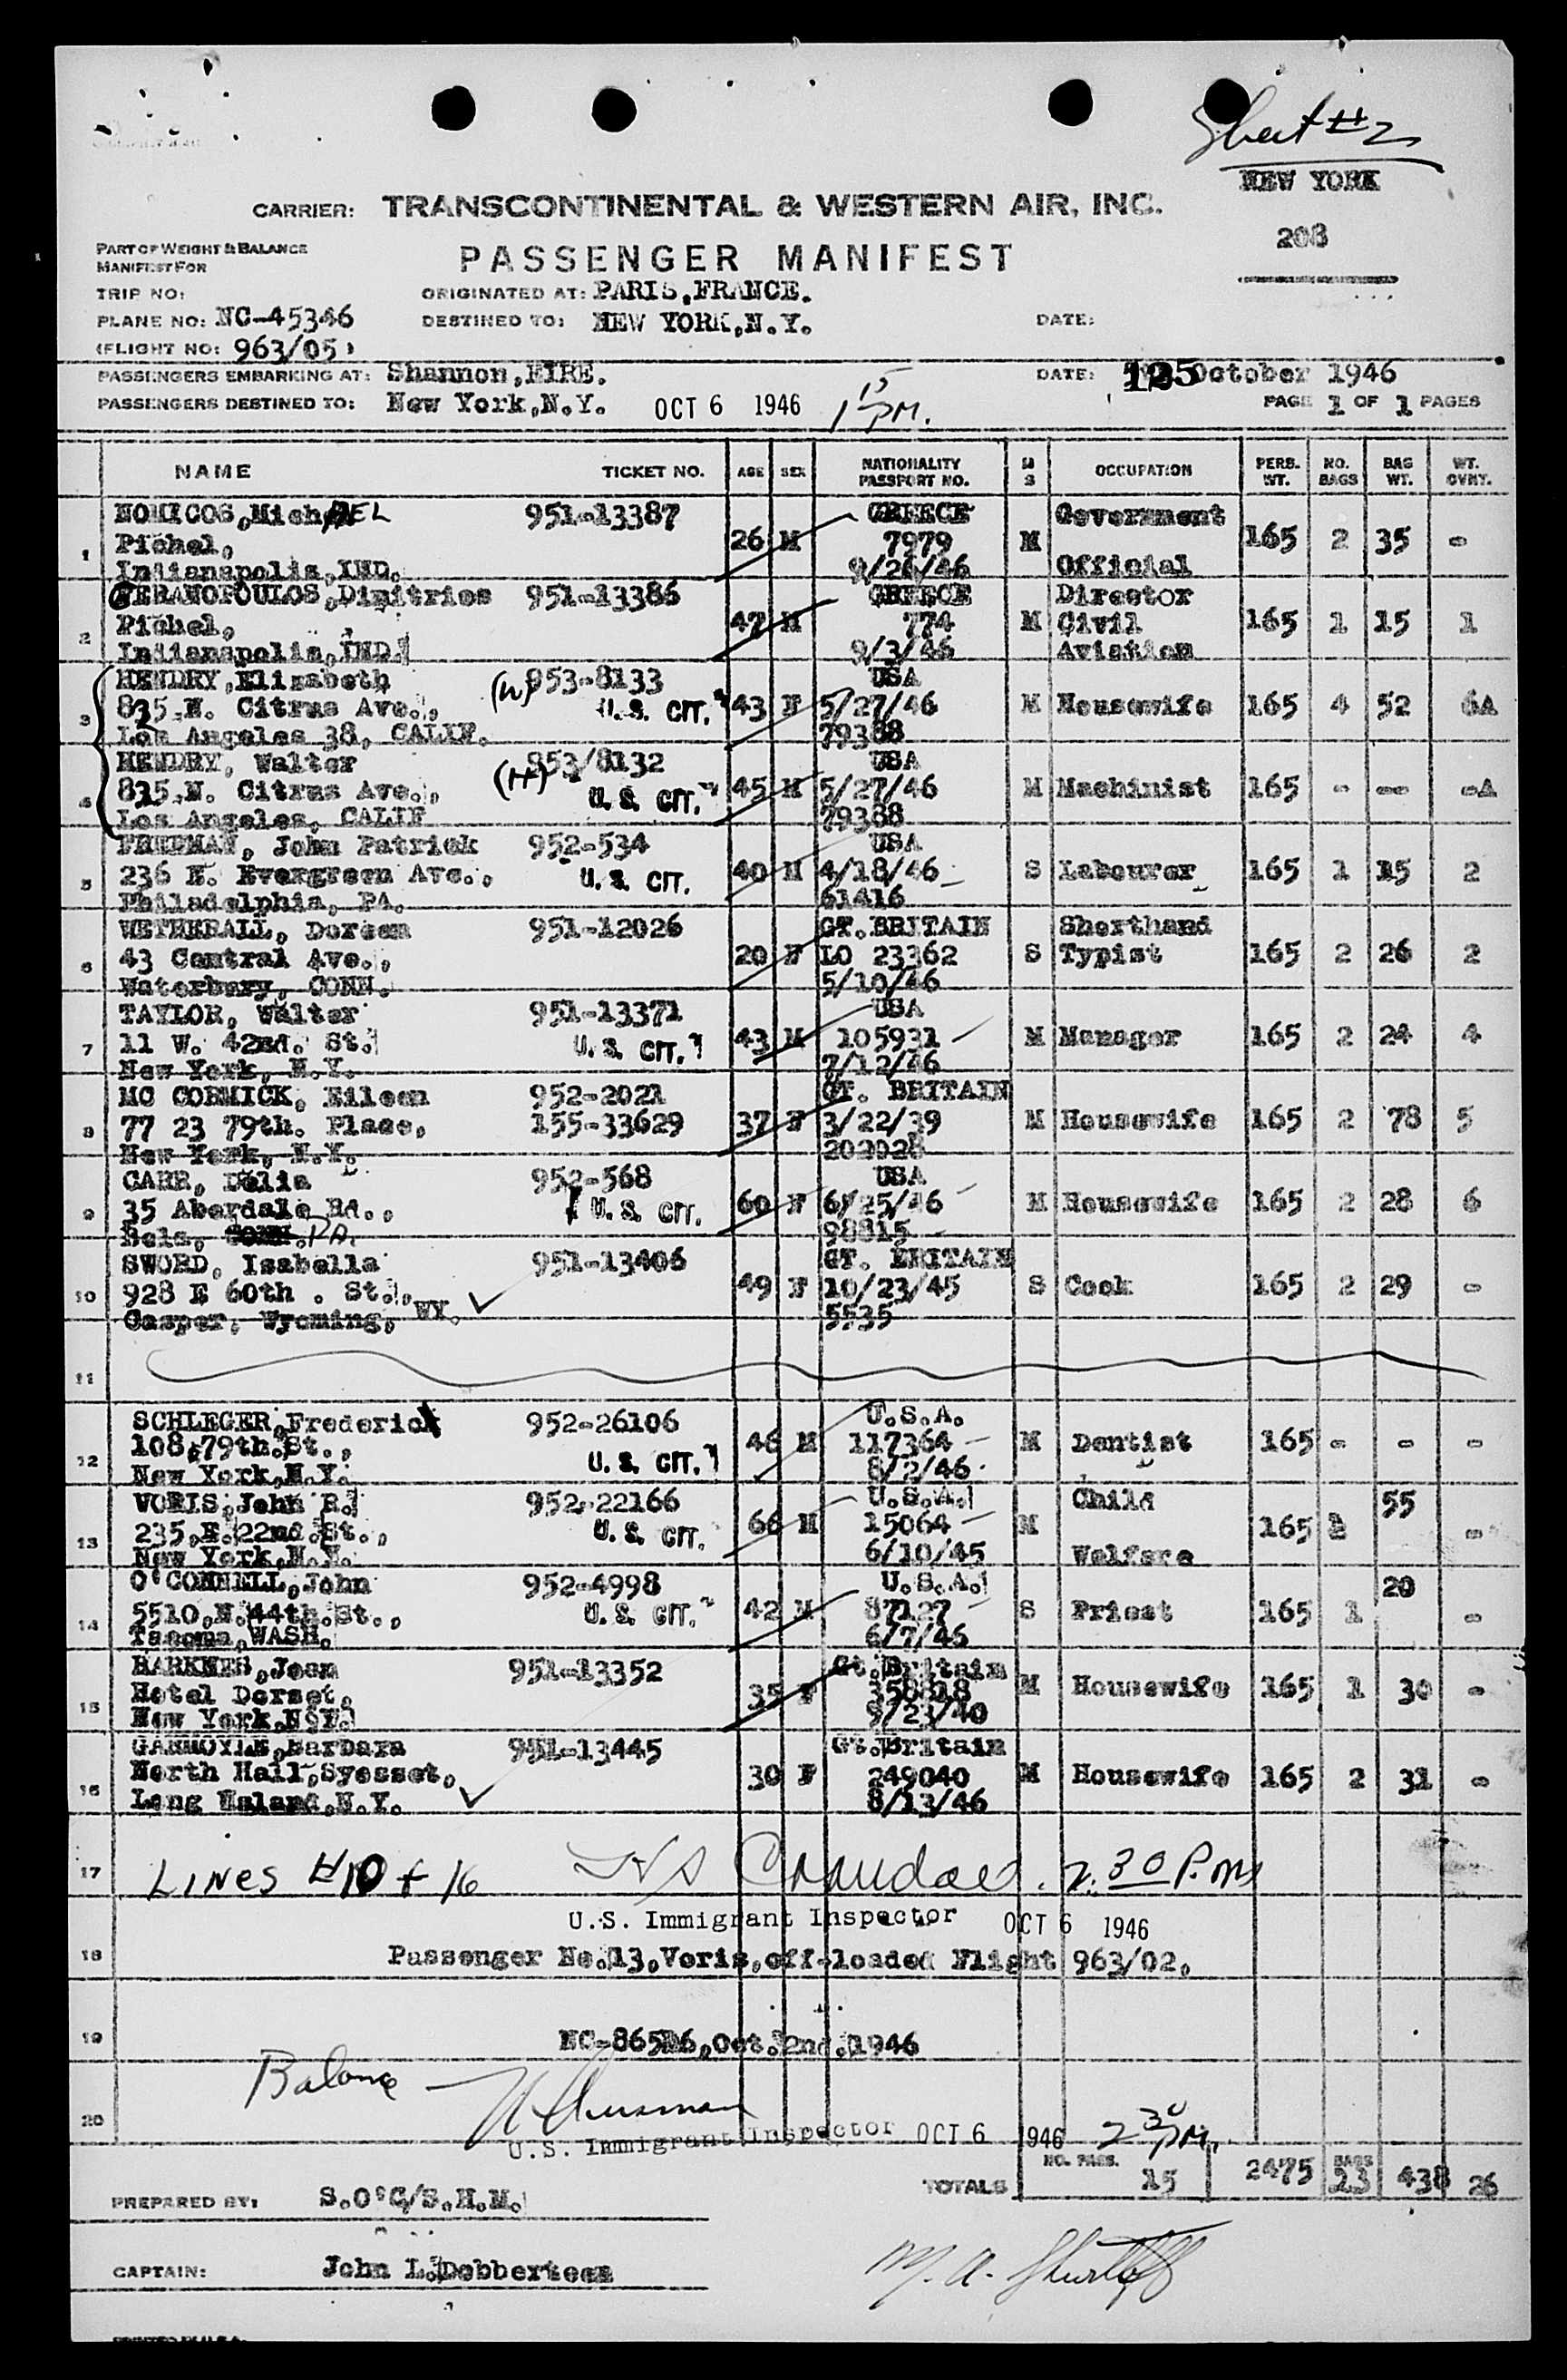 Sheet #2
NEW YORK
CARRIER: TRANSCONTINENTAL & WESTERN AIR, INC.
208
PART OF WEIGHT & BALANCE
MANIFEST FOR
PASSENGER MANIFEST
TRIP NO:
ORIGINATED AT: PARIS, FRANCE.
PLANE NO: NC-45346
DESTINED TO: NEW YORK, N.Y.
DATE:
(FLIGHT NO: 963/05)
PASSENGERS EMBARKING AT: Shannon, EIRE.
DATE: October 1946
PASSENGERS DESTINED TO: New York, N.Y. OCT 6 1946 1 15 PM.
PAGE 1 OF 1 PAGES
NAME TICKET NO. AGE SEX NATIONALITY PASSPORT NO. M S OCCUPATION PERS. WT. NO. BAGS BAG WT. WT. OVRT.
NOMICOS, MichAEL 951-13387 GREECE Government
1 Pichel, 26 M 7979 M 165 2 35 -
Indianapolis, IND. 9/26/46 Official
GERANOPOULOS, Dimitrios 951-13386 GREECE Director
2 Pichel, 47 M 774 M Civil 165 1 15 1
Indianapolis, IND. 9/3/46 Aviation
HENDRY, Elizabeth (W) 953-8133 USA
3 835 N. Citrus Ave., U.S. CIT. 43 F 5/27/46 M Housewife 165 4 52 6A
Los Angeles 38, CALIF. 79388
HENDRY, Walter (H) 953/8132 USA
4 835 N. Citrus Ave., U.S. CIT. 45 M 5/27/46 M Machinist 165 - -- -A
Los Angeles, CALIF 79388
John Patrick 952-534 USA
5 236 E. Evergreen Ave., U.S. CIT. 40 M 4/18/46 S Labourer 165 1 15 2
Philadelphia, PA. 61416
WETHERALL, Doreen 951-12026 GT. BRITAIN Shorthand
6 43 Central Ave., 20 F LO 23362 S Typist 165 2 26 2
Waterbury, CONN. 5/10/46
TAYLOR, Walter 951-13371 USA
7 11 W. 42nd. St. U.S. CIT. 43 M 105931 M Manager 165 2 24 4
New York, N.Y. 7/12/46
MC CORMICK, Eileen 952-2021 GT. BRITAIN
8 77 23 79th. Place, 155-33629 37 F 3/22/39 M Housewife 165 2 78 5
New York, N.Y. 202028
CARR, Delia 952-568 USA
9 35 Aberdale Rd., U.S. CIT. 60 F 6/25/46 M Housewife 165 2 28 6
PA. 98815
SWORD, Isabella 951-13406 GT. BRITAIN
10 928 E 60th . St., 49 F 10/23/45 S Cook 165 2 29 -
Casper, Wyoming, WY. 5535
11
SCHLEGER, Frederick 952-26106 U.S.A.
12 108, 79th. St., U.S. CIT. 46 M 117364 M Dentist 165 - - -
New York, N.Y. 8/2/46
VORIS, John R. 952-22166 U.S.A. Child 55
13 235, E. 22nd. St., U.S. CIT. 66 M 15064 M 165 2 -
New York, N.Y. 6/10/45 Welfare
O'CONNELL, John 952-4998 U.S.A. 20
14 5510, N. 44th. St., U.S. CIT. 42 M 87127 S Priest 165 1 -
Tacoma, WASH. 6/7/46
HARKNES, Jean 951-13352 Gt. Britain
15 Hotel Dorset, 35 F 358818 M Housewife 165 1 30 -
New York, N.Y. 9/23/40
Barbara 951-13445 Gt. Britain
16 North Hall, Syosset, 30 F 249040 M Housewife 165 2 31 -
Long Island, N.Y. 8/13/46
17 LINES #10 + 16 2:30 P.M
U.S. Immigrant Inspector OCT 6 1946
18 Passenger No. 13, Voris, off-loaded Flight 963/02,
19 Oct. 2nd. 1946
Balance
20
U.S. Immigrant Inspector OCT 6 1946 2 30 PM.
TOTALS NO. PASS. 15 2475 BAGS 23 438 26
PREPARED BY: S.O'C/S.H.M.
CAPTAIN: John L. Dobberteen
PRINTED IN U.S.A.